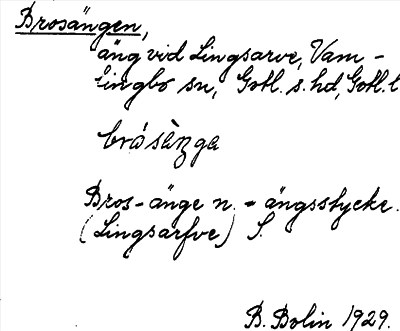 Brosängen,
äng vid Lingsarve, Vam-
lingbo sn, Gotl. s. hd, Gotl. l
bròsàŋga
Bros-änge n. = ängsstycke.
(Lingsarfve) S.
B. Bolin 1929.